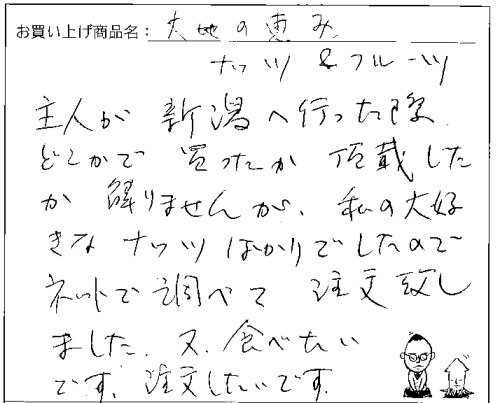 お買い上げ商品名：大地の恵み
ナッツ＆フルーツ
主人が新潟へ行った際
どこかで買ったか頂戴した
か解りませんが、私の大好
きなナッツばかりでしたので
ネットで調べて注文致し
ました。又、食べたい
です。注文したいです。